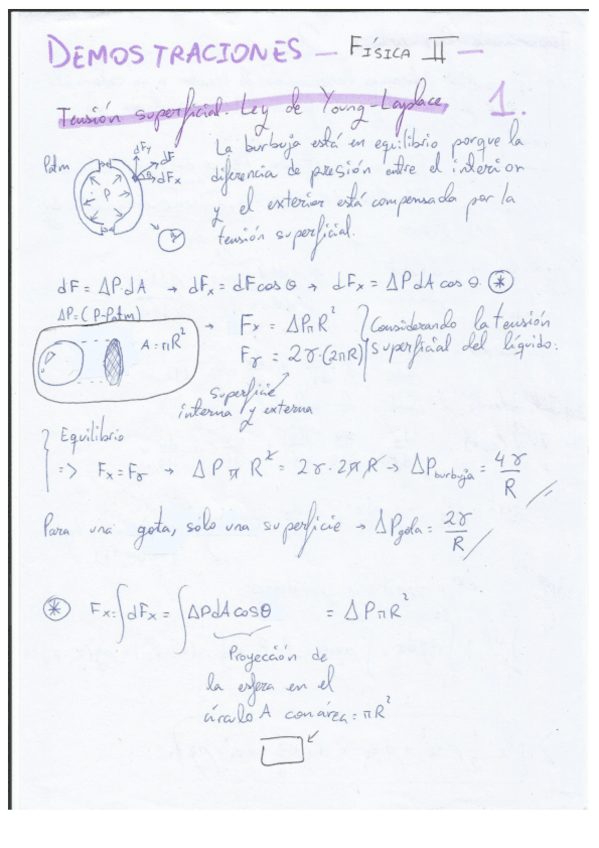 DEMOSTRACIONES - FÍSICA II -
Tensión superficial. Ley de Young-Laplace. 1.
La burbuja está en equilibrio porque la
diferencia de presión entre el interior
y el exterior está compensada por la
tensión superficial.
Patm
dFy
dF
dFx
θ
P
dF = ΔPdA → dFx = dF cos θ → dFx = ΔPdA cos θ. *
ΔP = (P-Patm)
A = πR²
→ Fx = ΔPπR²
Fγ = 2γ·(2πR)
Considerando la tensión
superficial del líquido.
Superficie
interna y externa
Equilibrio
=> Fx = Fγ → ΔPπR² = 2γ·2πR → ΔPburbuja = 4γ/R
Para una gota, sólo una superficie → ΔPgota = 2γ/R
* Fx = ∫dFx = ∫ΔPdA cosθ = ΔPπR²
Proyección de
la esfera en el
círculo A con área = πR²